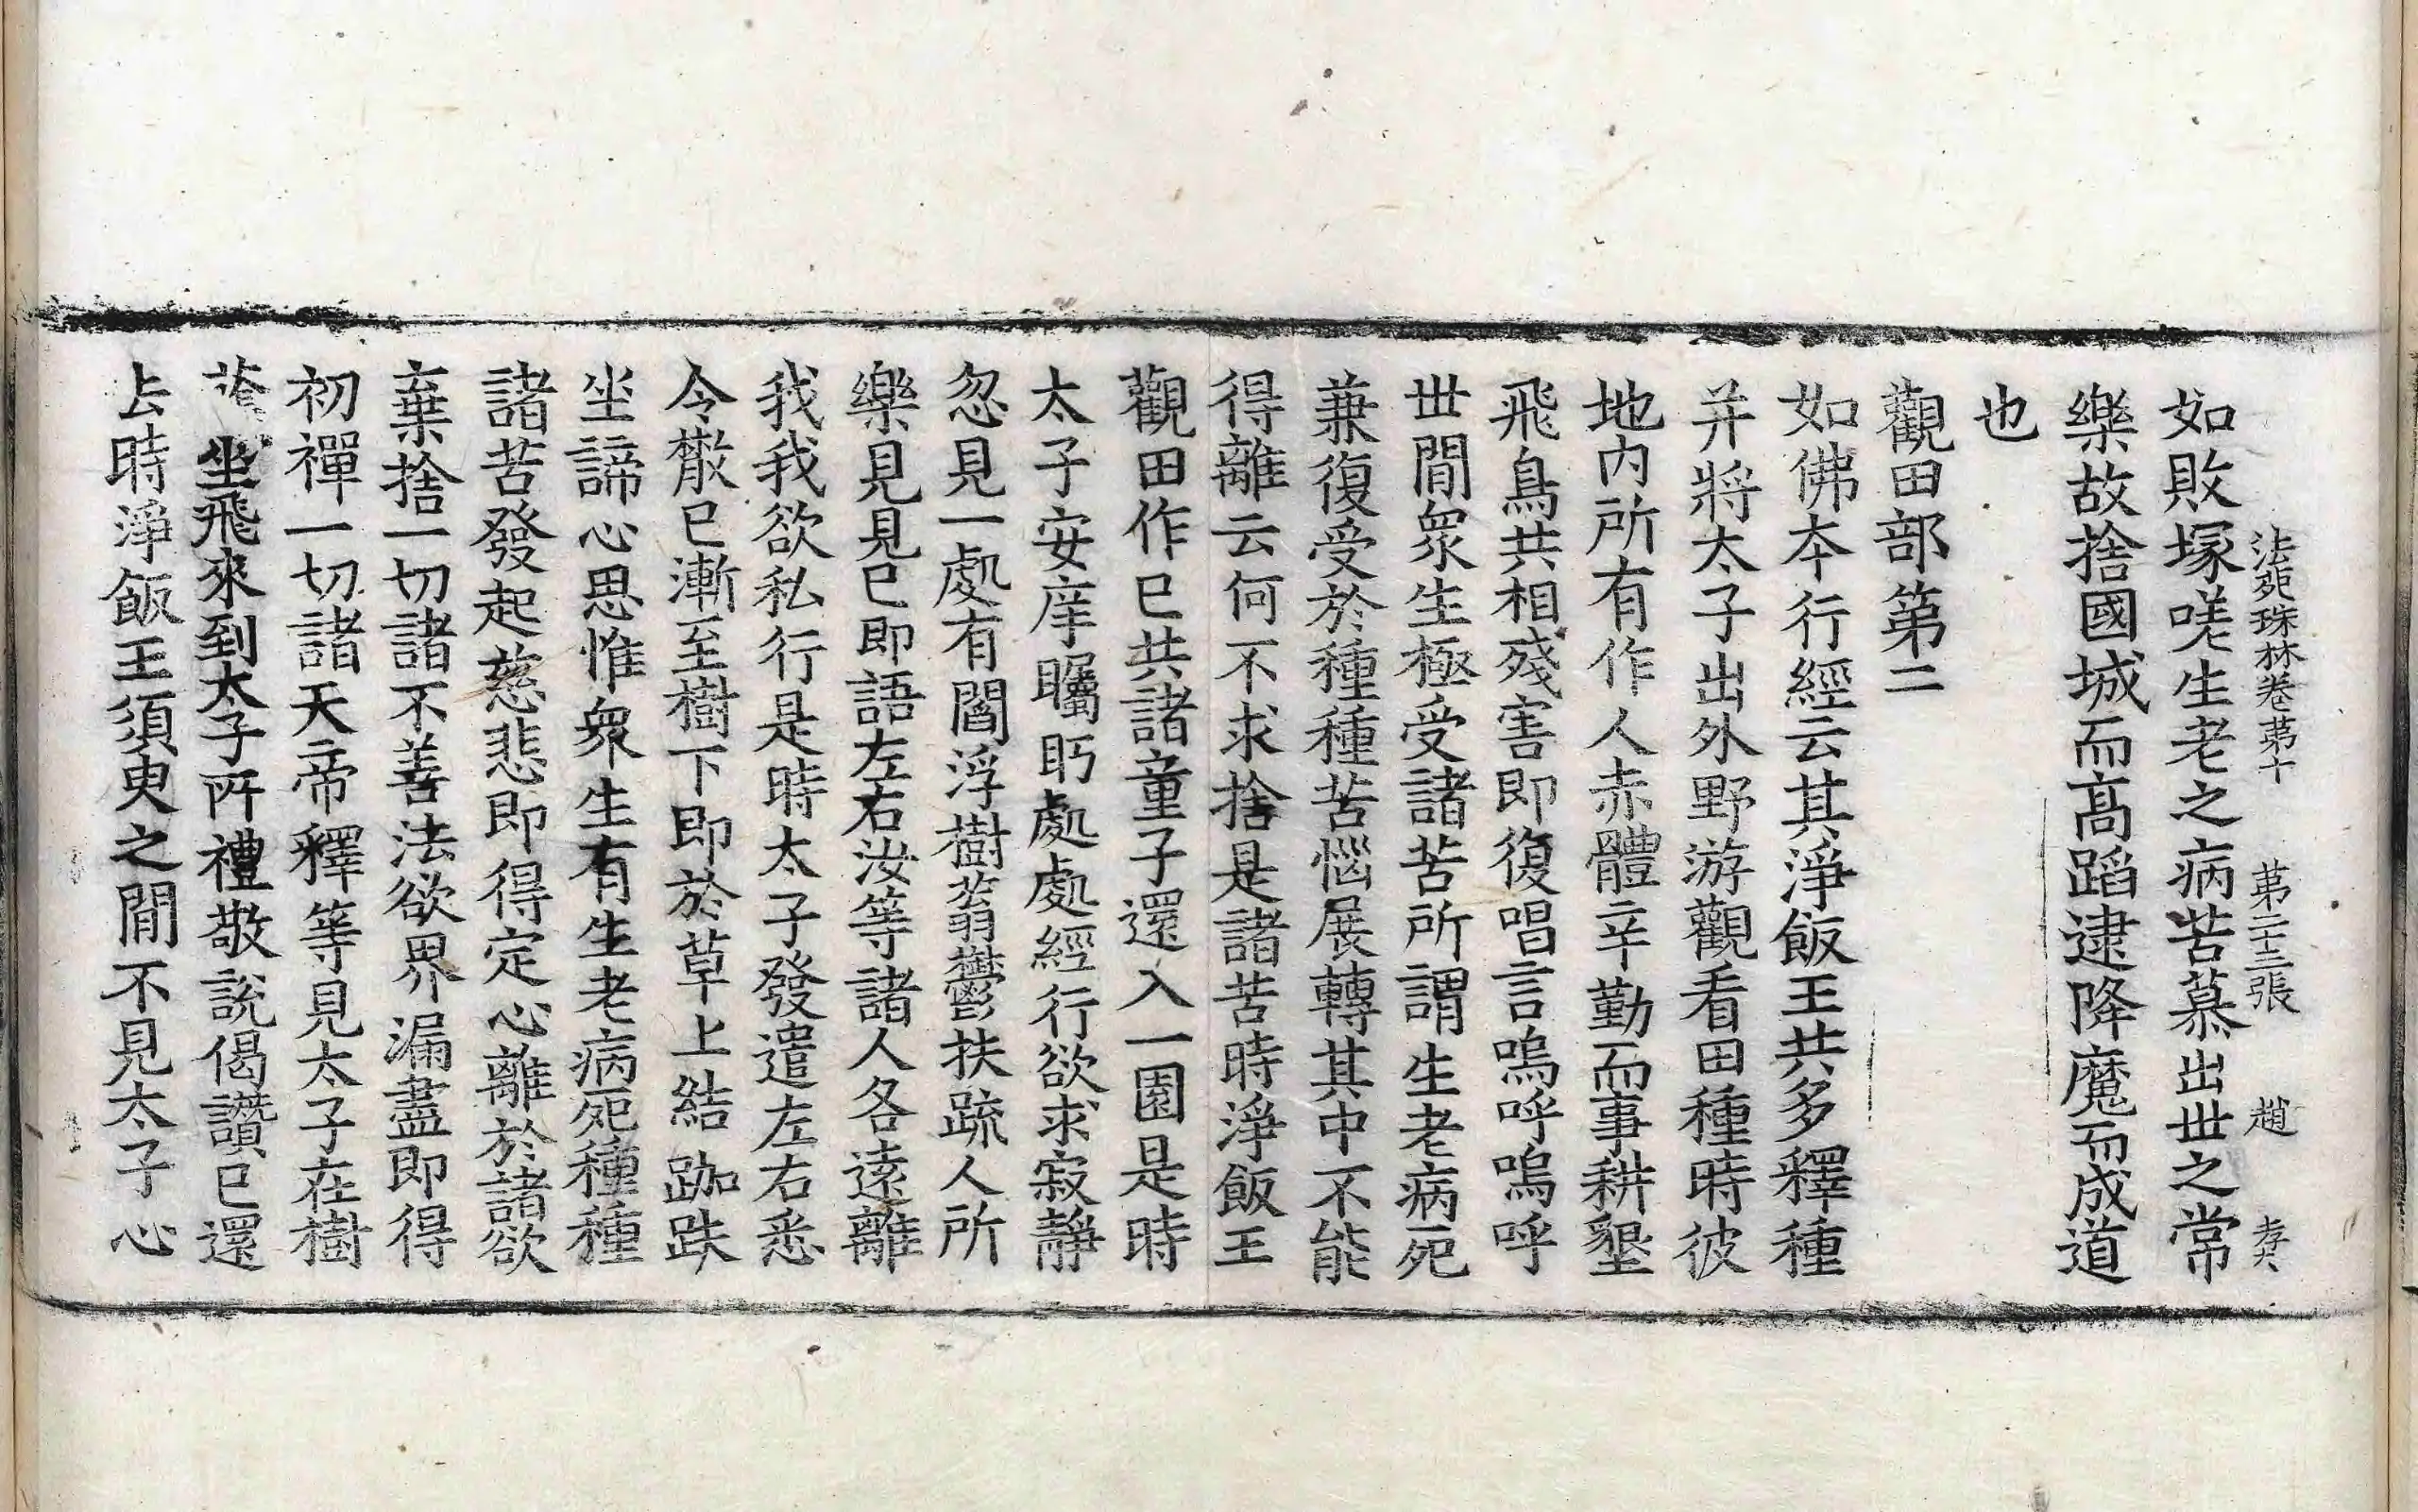 法苑珠林卷苐十 苐二十三張 趙
如敗塚嗟生老之病苦慕出丗之常
樂故捨國城而高蹈逮降魔而成道
也
觀田部第二
如佛本行經云其淨飯王共多釋種
并將太子出外野游觀看田種時彼
地内所有作人赤體辛勤而事耕墾
飛鳥共相殘害即復唱言嗚呼嗚呼
丗閒衆生極受諸苦所謂生老病死
兼復受於種種苦惱展轉其中不能
得離云何不求捨是諸苦時淨飯王
觀田作已共諸童子還入一園是時
太子安庠矚眄處處經行欲求寂靜
忽見一處有閻浮樹蓊鬱扶疏人所
樂見見已即語左右汝等諸人各遠離
我我欲私行是時太子發遣左右悉
令散已漸至樹下即於草上結跏趺
坐諦心思惟衆生有生老病死種種
諸苦發起慈悲即得定心離於諸欲
棄捨一切諸不善法欲界漏盡即得
初禪一切諸天帝釋等見太子在樹
蔭坐飛來到太子所禮敬說偈讚已還
去時淨飯王須臾之閒不見太子心